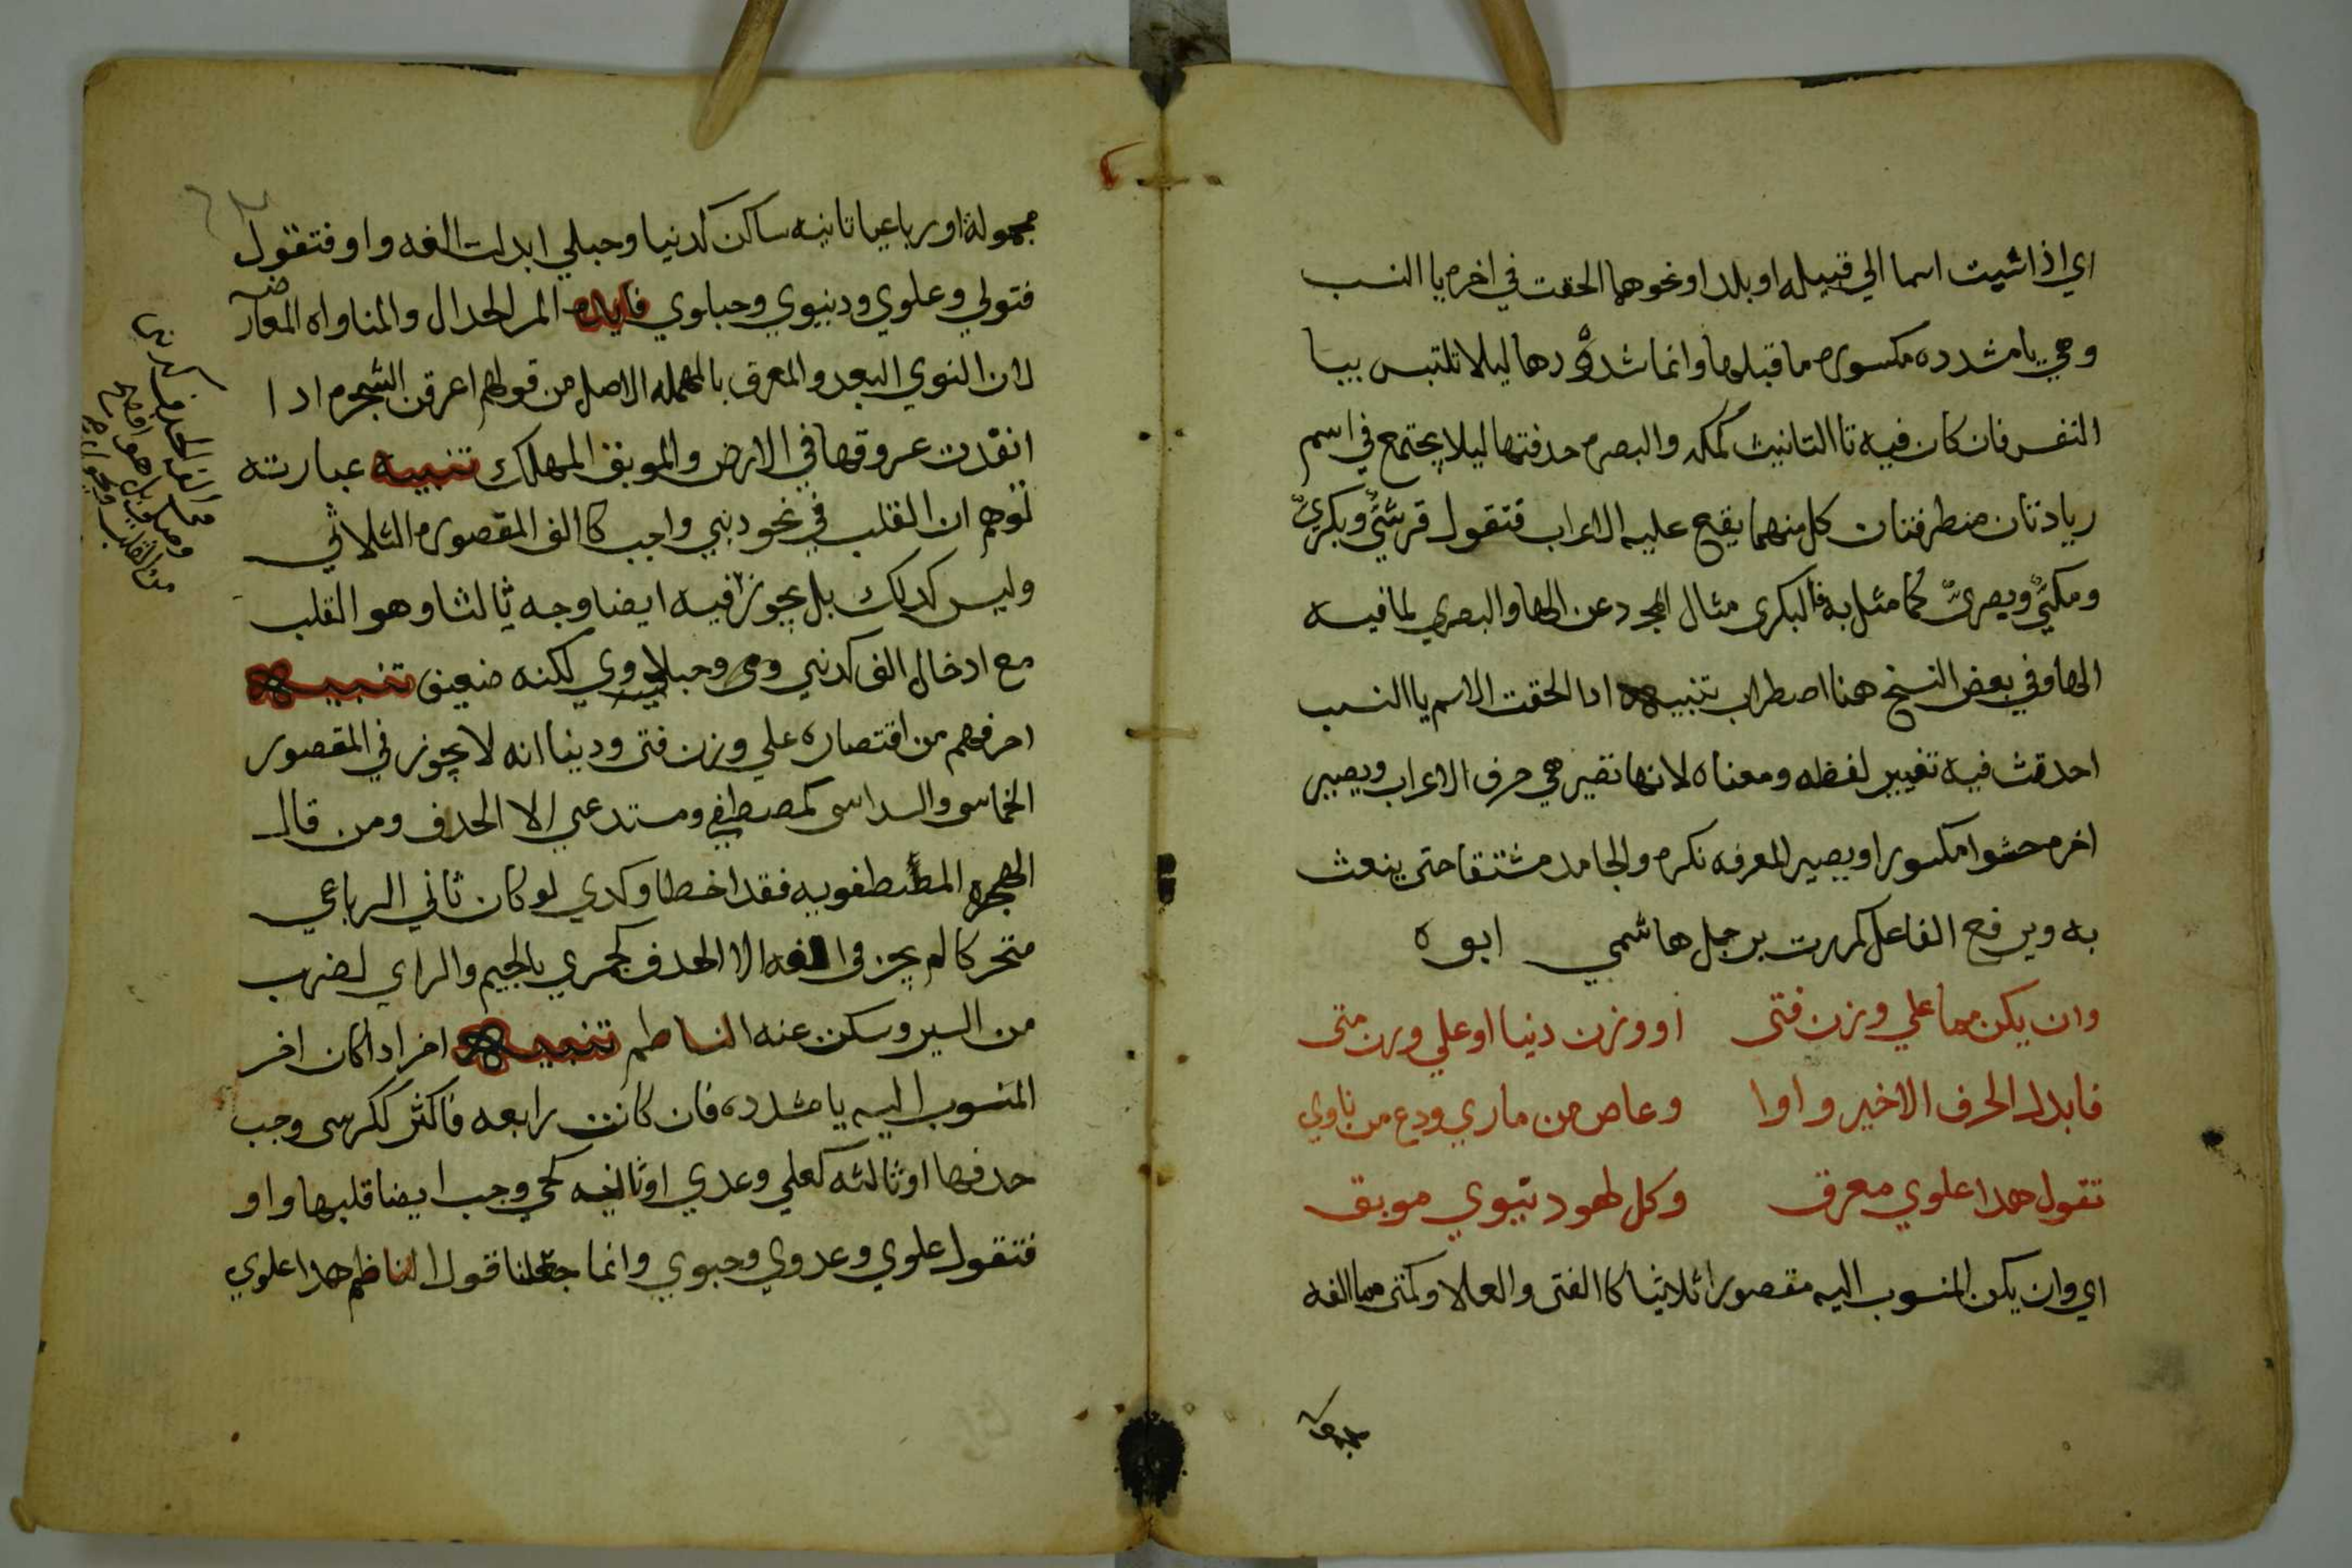 اي اذا اشيت اسما الي قبيله او بلد او نحوهما الحقت في اخره يا النسب
وهي يا مشدده مكسوره ما قبلها وانما شددها ليلا تلتبس بيا
النفس فان كان فيه تا التانيث كمكه والبصره حدفتها ليلا يجتمع في اسم
ريادتان منطرفتان كل منهما يقع عليه الاعراب فتقول قرشيٌّ وبكريٌّ
ومكيٌّ وبصريٌّ كما مثل به فالبكري مثال المجرد عن الها والبصري لما فيه
الها وفي بعض النسخ هنا اصطراب تنبيه ادا الحقت الاسم يا النسب
احدقث فيه تغيير لفظه ومعناه لانها تصير هي حرف الاعراب ويصير
اخره حشوا مكسورا ويصير المعرفه نكره والجامد مشتقا حتى ينعث
به ويرفع الفاعل كمررت برجل هاشمي ابوه
وان يكن مما علي وزن فتى او وزن دنيا او علي ورن متى
فابدل الحرف الاخير واوا وعاص من ماري ودع من ناوي
تقول هدا علوي معرق وكل لهو دنيوي موبق
اي وان يكن المنسوب اليه مقصورا ثلاثيا كالفتى والعلا وكمتى مما الفه
مجهولة
مجهولة او رباعيا تانيه ساكن كدنيا وحبلي ابدلت الفه واو فتقول
فتوي وعلوي ودنيوي وحبلوي فايده المرا الجدال والمناواه المعارضه
لان النوي البعد والمعرق بالمهمله الاصل من قولهم اعرقن الشجره ادا
انقدت عروقها في الارض والموبق المهلك تنبيه عبارته
توهم ان القلب في نحو دنيي واجب كالف المقصوره الثلاثي
وليس كدلك بل يجوز فيه ايضا وجه ثالثا وهو القلب
مع ادخال الف كدنيي وحبلاوي لكنه ضعيف تنبيه
احر فهم من اقتصاره علي وزن فتى ودينا انه لا يجوز في المقصور
الخماسي والسداسي كمصطفي ومستدعي الا الحدف ومن قال
المصطفويه فقد اخطا وكدي لو كان ثاني الرباعي
متحركا لم يجز في الفه الا الحدف كجمزي بالجيم والراي لضرب
من السير وسكن عنه الناطم تنبيه اخر ادا كان اخر
المنسوب اليه يا مشدده فان كانت رابعه فاكثر ككرسي وجب
حدفها او ثالثه كعلي وعدي او ثانيه كحي وجب ايضا قلبها واو
فتقول علوي وعدوي وحيوي وانما جعلنا قول الناظم هدا علوي